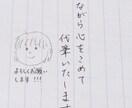 ながら心をこめて
代筆いたします
よろしくお願い
します!!!